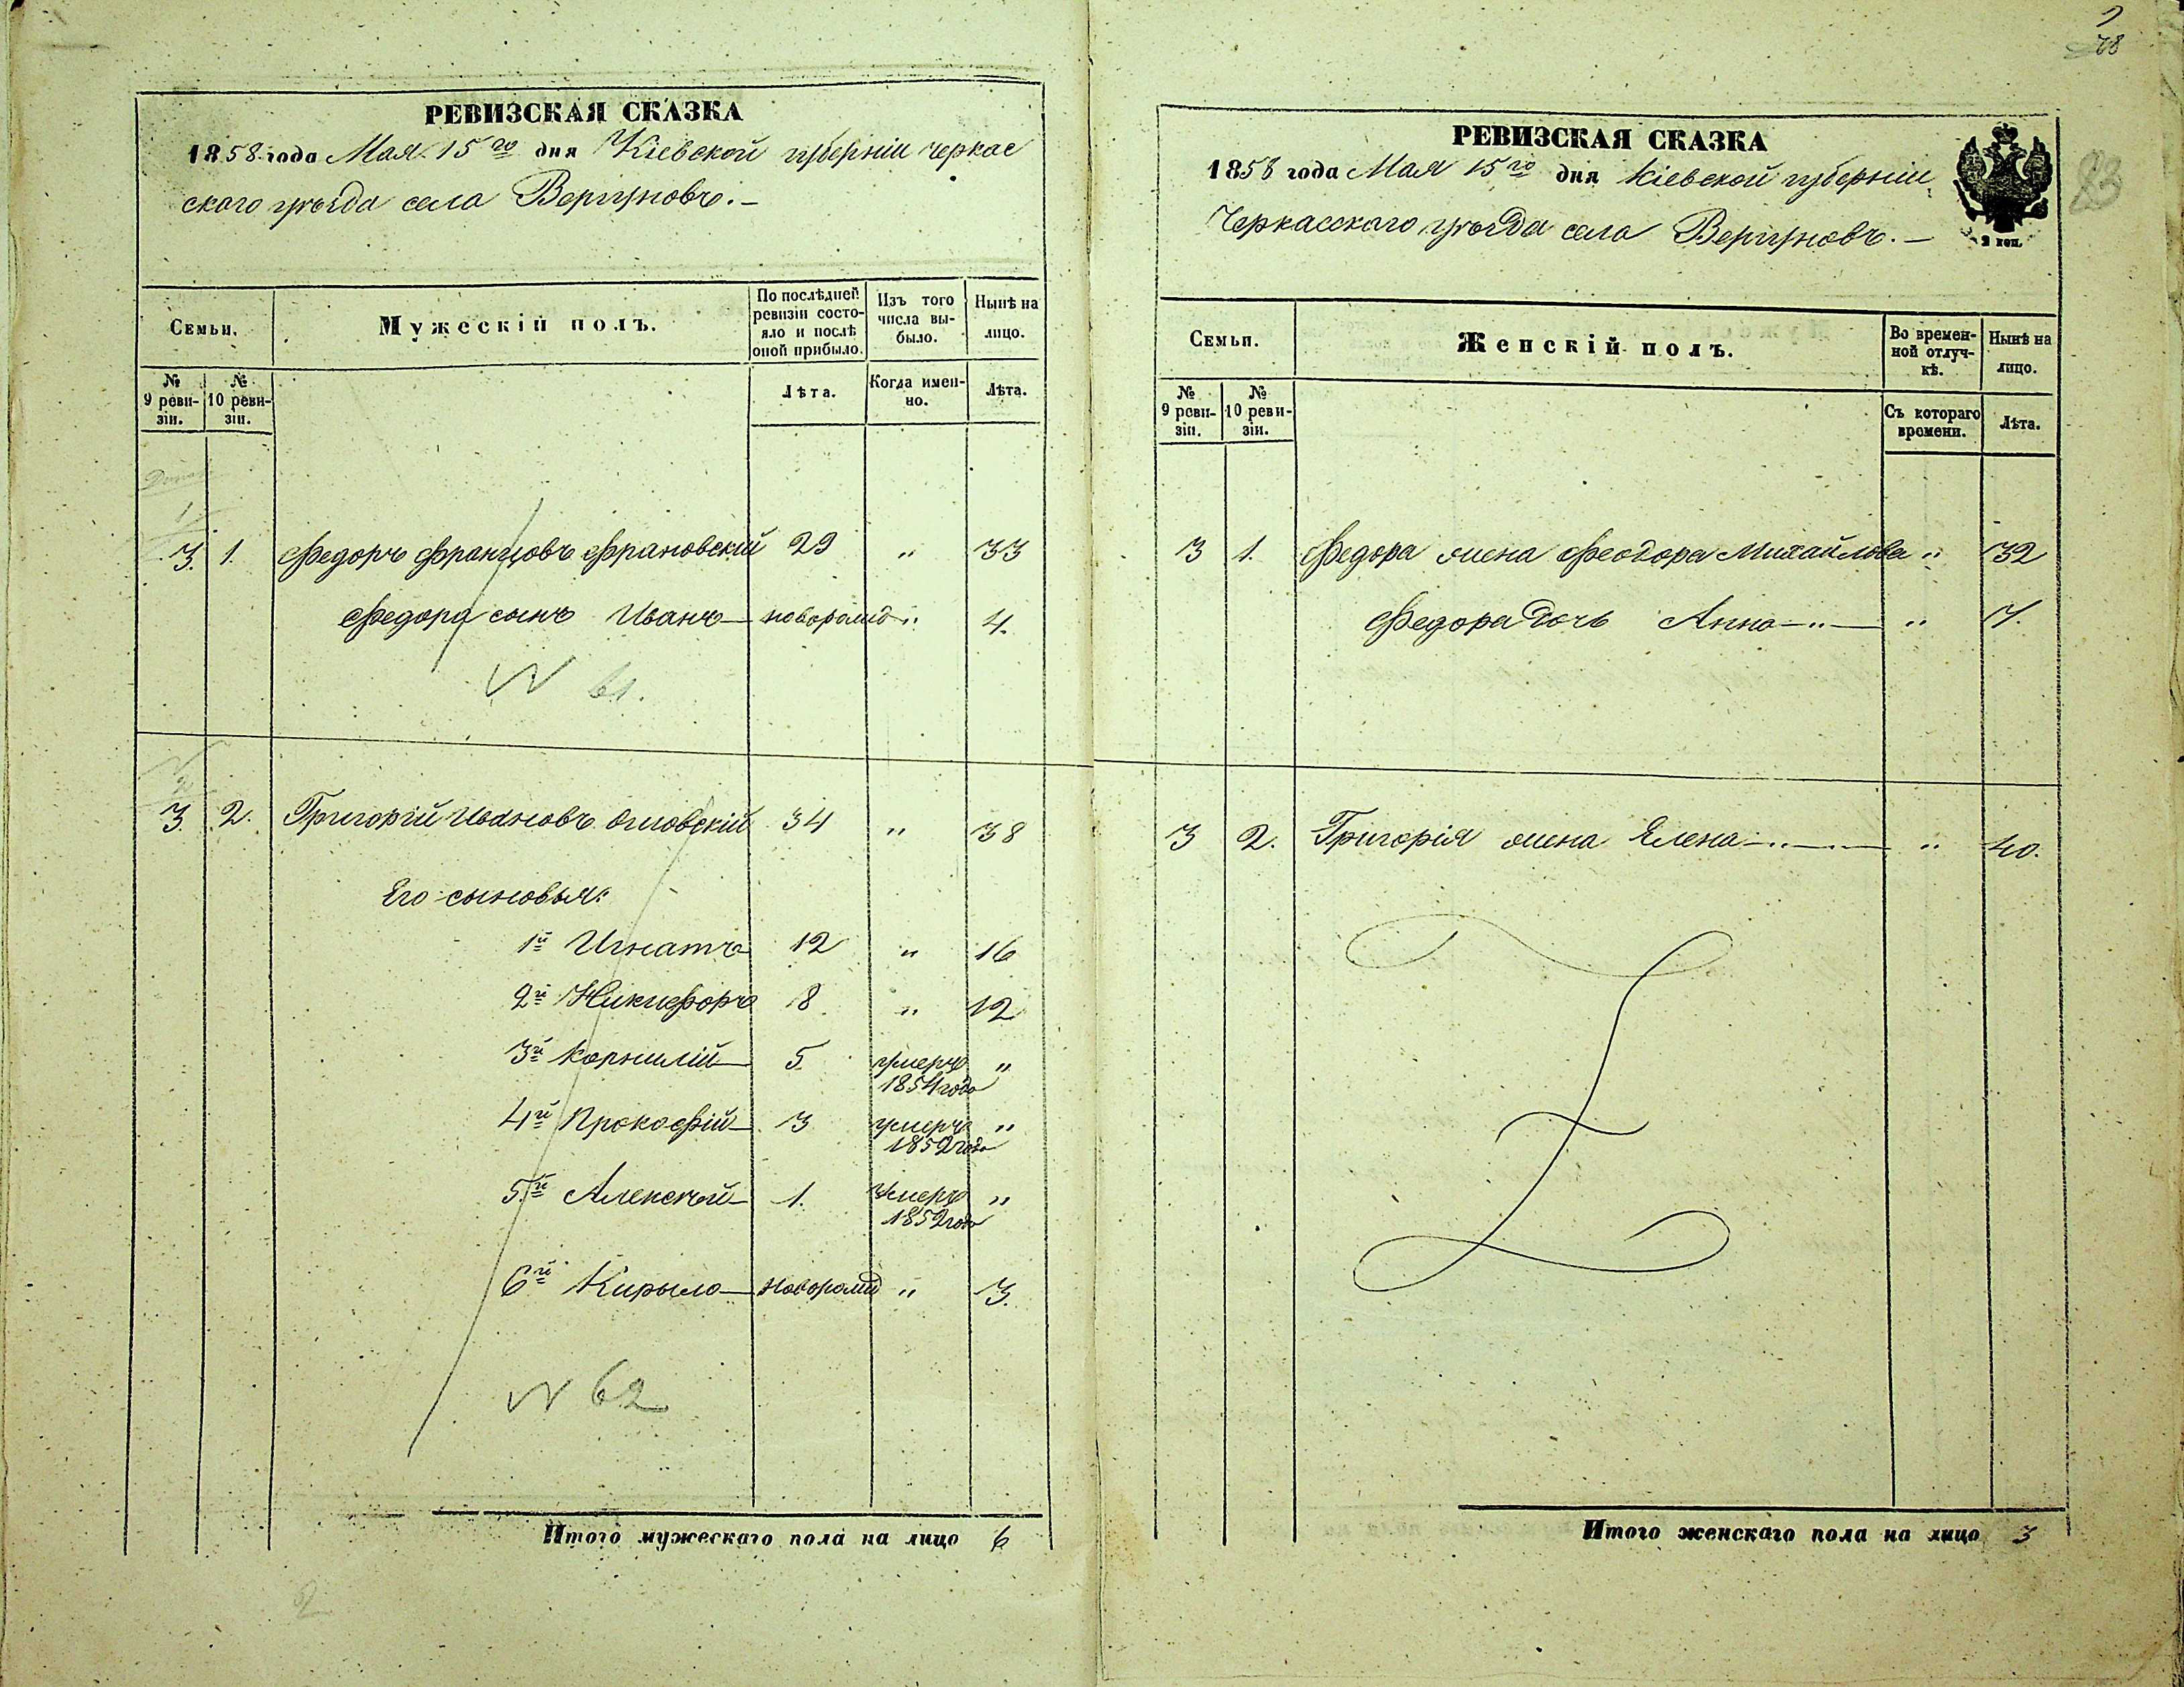 РЕВИЗСКАЯ СКАЗКА
1858 года Мая 15го дня Кіевской губерніи Черкас
скаго уѣзда села Вергуновъ.-
Семьи.
Мужескій полъ.
По послѣдней ревизіи состояло и послѣ оной прибыло.
Изъ того числа выбыло.
Нынѣ на лицо.
№ 9 ревизіи.
№ 10 ревизіи.
Лѣта.
Когда именно.
Лѣта.
3. 1. Федоръ Францовъ Франовскій 29 " 33
Федора сынъ Иванъ новорожд " 4.
N 61.
3. 2. Григорій Ивановъ 34 " 38
Его сыновья:
1й Игнатъ 12 " 16
2й Никифоръ 8 " 12
3й Корнилій 5 умеръ 1854 года "
4й Прокофій 3 умеръ 1852 года "
5й Алексѣй 1. умеръ 1852 года "
6й Кирыло новорожд " 3.
N 62
Итого мужескаго пола на лицо 6
2
78
РЕВИЗСКАЯ СКАЗКА
1858 года Мая 15го дня Кіевской губерніи
Черкасскаго уѣзда села Вергуновъ.-
2 коп.
83
Семьи.
Женскій полъ.
Во временной отлучкѣ.
Нынѣ на лицо.
№ 9 ревизіи.
№ 10 ревизіи.
Съ котораго времени.
Лѣта.
3 1. Федора жена Феодора Михайлова " 32
Федора дочь Анна " 7.
3 2. Григорія жена Елена " 40.
Итого женскаго пола на лицо 3